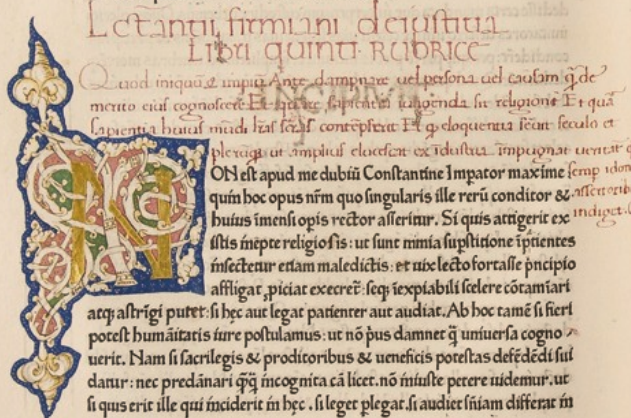 Lctantii firmiani de iustitia
Libri quinti. Rubrice
Quod iniquũ ẽ impiũ Ante dampnare uel persona uel causam q̃ de
merito eius cognoscere Et sapientia iungenda sit religioni Et quã
sapientia huius mũdi contẽpserit Et q eloquentia seculo et
plerũq ut amplius elucescat ex idustria impugnat ueritat
NON est apud me dubiũ Constantine Imperator maxime semp idon
quin hoc opus nr̃m quo singularis ille rerũ conditor & assertorib
huius ĩmensi opis rector asseritur. Si quis attigerit ex indiget
istis inepte religiosis: ut sunt nimia supstitione ĩptientes
insectetur etiam maledictis: et uix lecto fortasse prĩcipio
affligat piciat execret: seq ĩexpiabili scelere cõtamĩari
atq; astrĩgi putet: si hẹc aut legat patienter aut audiat. Ab hoc tamẽ si fieri
potest humãitatis iure postulamus: ut nõ pꝰus damnet q̃ uniuersa cogno
uerit. Nam si sacrilegis & proditoribus & ueneficis potestas defẽdẽdi sui
datur: nec predãnari q̃q̃ incognita cã licet. nõ iniuste petere uidemur. ut
si quis erit ille qui inciderit in hẹc. si leget plegat. si audiet sñiam differat in